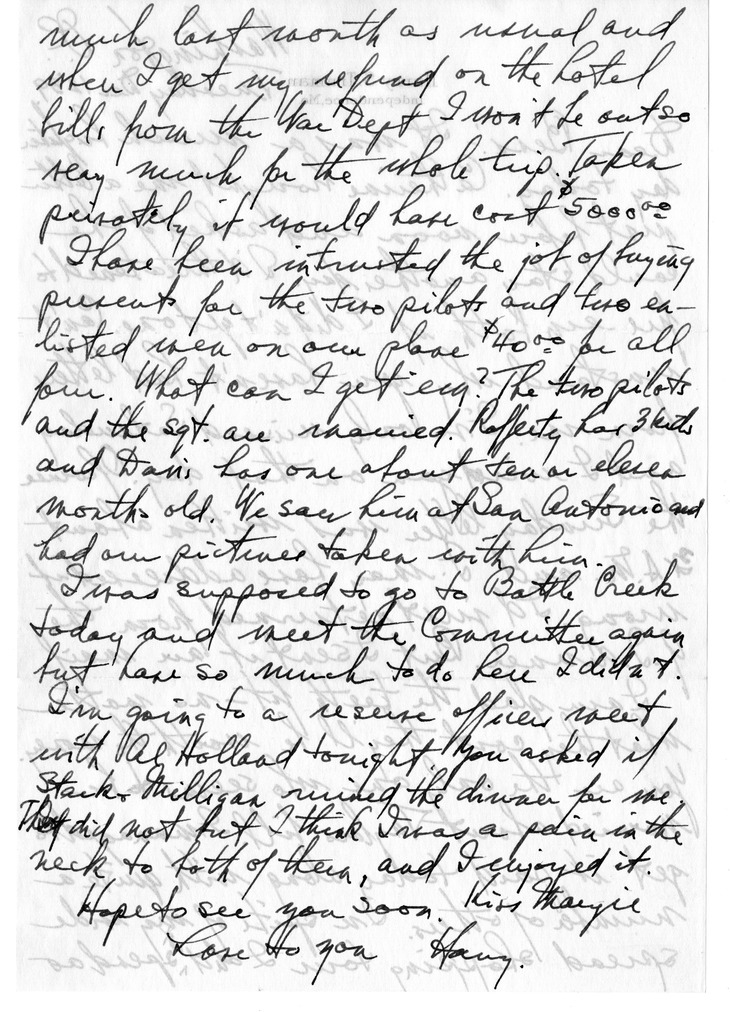 much last month as usual and
when I get my refund on the hotel
bills from the War Dept I won't be out so
very much for the whole trip. Taken
privately it would have cost $5000 00
I have been intrusted the job of buying
presents for the two pilots and two en-
listed men on our plane $40 00 for all
four. What can I get em? The two pilots
and the sgt. are married. Rafferty has 3 kids
and Davis has one about ten or eleven
months old. We saw him at San Antonio and
had our pictures taken with him.
I was supposed to go to Battle Creek
today and meet the Committee again
but have so much to do here I didn't.
I'm going to a reserve officers meet
with Al Holland tonight. You asked if
Stark & Milligan ruined the dinner for me
They did not but I think I was a pain in the
neck to both of them, and I enjoyed it.
Hope to see you soon. Kiss Margie
Love to you Harry.